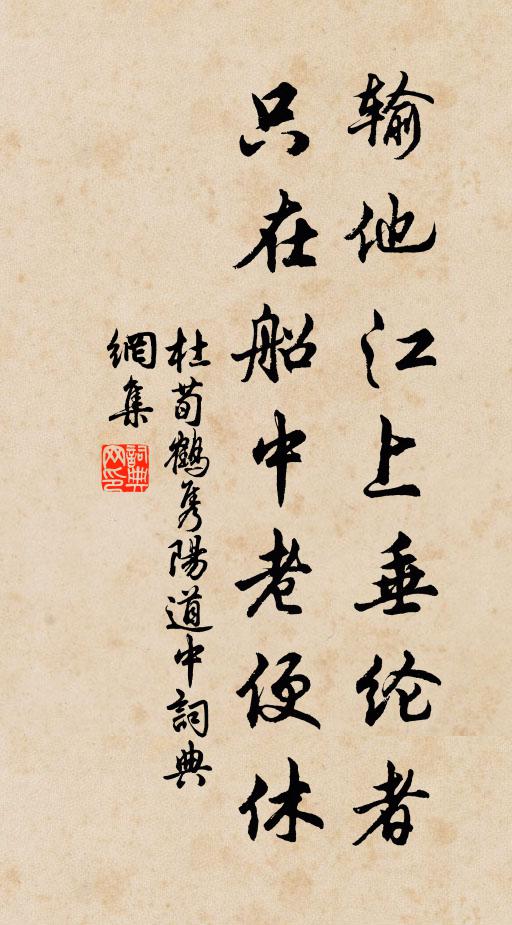 输他江上垂纶者
只在船中老便休
杜荀鹤隽陽道中詞典
網集
詞典网印